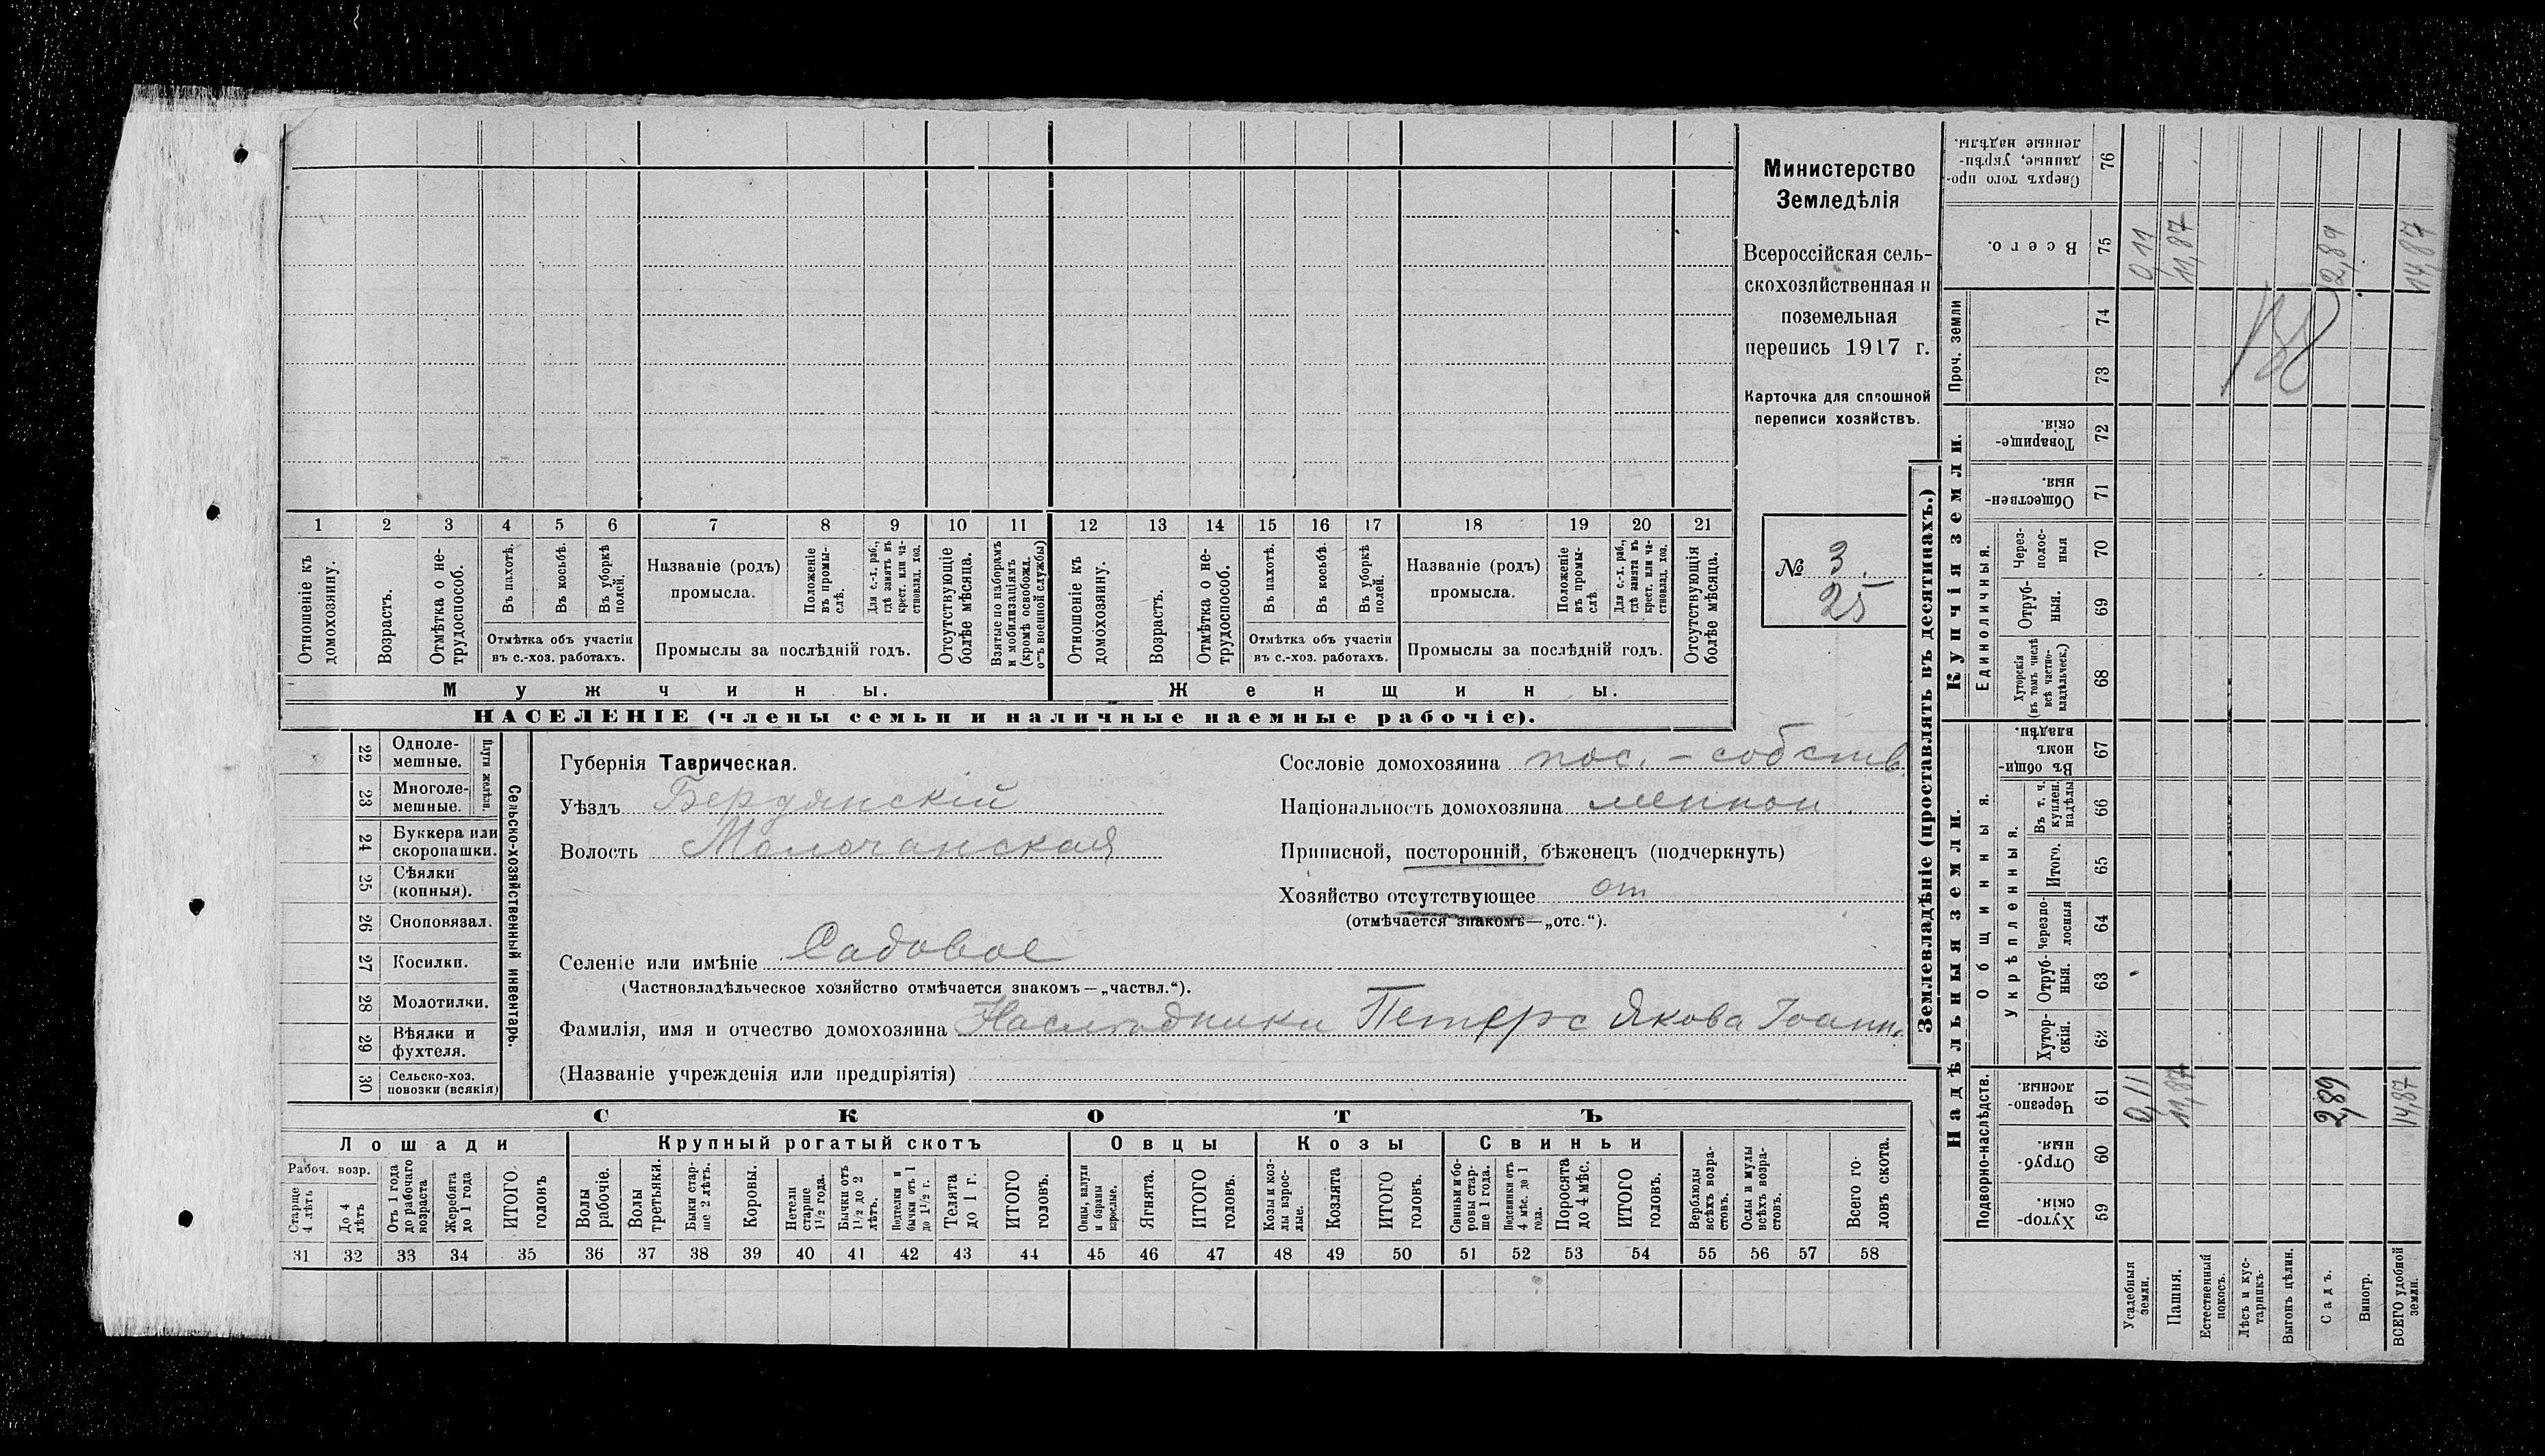 Министерство
Земледѣлія
Всероссійская сель-
скохозяйственная и
поземельная
перепись 1917 г.
Карточка для сплошной
переписи хозяйствъ.
№ 3.
25
1 2 3 4 5 6 7 8 9 10 11 12 13 14 15 16 17 18 19 20 21
Отношеніе къ домохозяину.
Возрастъ.
Отмѣтка о не-трудоспособ.
Въ пахотѣ.
Въ косьбѣ.
Въ уборкѣ полей.
Отмѣтка объ участіи
въ с.-хоз. работахъ.
Названіе (родъ)
промысла.
Положеніе въ промы-слѣ.
Для с.-х. раб., гдѣ занятъ въ крест. или ча-стновлад. хоз.
Промыслы за послѣдній годъ.
Отсутствующіе болѣе мѣсяца.
Взятые по наборамъ и мобилизаціямъ (кромѣ освобожд. отъ военной службы)
Отношеніе къ домохозяину.
Возрастъ.
Отмѣтка о не-трудоспособ.
Въ пахотѣ.
Въ косьбѣ.
Въ уборкѣ полей.
Отмѣтка объ участіи
въ с.-хоз. работахъ.
Названіе (родъ)
промысла.
Положеніе въ промы-слѣ
Для с.-х. раб., гдѣ занята въ крест. или ча-стновлад. хоз.
Промыслы за послѣдній годъ.
Отсутствующія болѣе мѣсяца.
Мужчины. Женщины.
НАСЕЛЕНІЕ (члены семьи и наличные наемные рабочіе).
22 Одноле-мешные.
23 Многоле-мешные.
Плуги желѣзн.
24 Буккера или скоропашки.
25 Сѣялки (конныя).
26 Сноповязал.
27 Косилки.
28 Молотилки.
29 Вѣялки и фухтеля.
30 Сельско-хоз. повозки (всякія)
Сельско-хозяйственный инвентарь.
Губернія Таврическая.
Уѣздъ Бердянскій
Волость Молочанская
Сословіе домохозяина пос. - собств.
Національность домохозяина меннон.
Приписной, посторонній, бѣженецъ (подчеркнуть)
Хозяйство отсутствующее от
(отмѣчается знакомъ—„отс.“).
Селеніе или имѣніе Садовое
(Частновладѣльческое хозяйство отмѣчается знакомъ—„частвл.“).
Фамилія, имя и отчество домохозяина Наслѣдники Петерс Якова Іоанн.
(Названіе учрежденія или предпріятія)
СКОТЪ
Лошади Крупный рогатый скотъ Овцы Козы Свиньи
Рабоч. возр.
Старше 4 лѣтъ
До 4 лѣтъ
Отъ 1 года до рабочаго возраста
Жеребята до 1 года
ИТОГО головъ
Волы рабочіе.
Волы третьяки.
Быки стар-ше 2 лѣтъ.
Коровы.
Нетели старше 1½ года.
Бычки отъ 1½ до 2 лѣтъ.
Подтелки и бычки отъ 1 до 1½ г.
Телята до 1 г.
ИТОГО головъ.
Овцы, валухи и бараны взрослые.
Ягнята.
ИТОГО головъ.
Козы и коз-лы взрос-лые.
Козлята
ИТОГО головъ.
Свиньи и бо-ровы стар-ше 1 года.
Подсвинки отъ 4 мѣс. до 1 года.
Поросята до 4 мѣс.
ИТОГО головъ.
Верблюды всѣхъ возра-стовъ.
Ослы и мулы всѣхъ возра-стовъ.
Всего го-ловъ скота.
31 32 33 34 35 36 37 38 39 40 41 42 43 44 45 46 47 48 49 50 51 52 53 54 55 56 57 58
Землевладѣніе (проставлять въ десятинахъ.)
Надѣльныя земли. Купчія земли. Проч. земли
Подворно-наслѣдств.
Общинныя.
Укрѣпленныя.
Единоличныя.
Хутор-скія. 59
Отруб-ныя. 60
Черезпо-лосныя. 61
Хутор-скія. 62
Отруб-ныя. 63
Черезпо-лосныя 64
Итого. 65
Въ т. ч. куплен. надѣлы 66
Въ общин-номъ владѣн. 67
Хуторскія (въ томъ числѣ всѣ частно-владѣльческ.) 68
Отруб-ныя. 69
Через-полос-ныя 70
Обществен-ныя. 71
Товарище-скія. 72
73
74
Всего. 75
Сверхъ того про-данные, укрѣп-ленные надѣлы. 76
Усадебныя земли. 0,11 0,11
Пашня. 11,87 11,87
Естественный покосъ.
Лѣсъ и кус-тарникъ.
Выгонъ цѣлин.
Садъ. 2,89 2,89
Виногр.
ВСЕГО удобной земли. 14,87 14,87